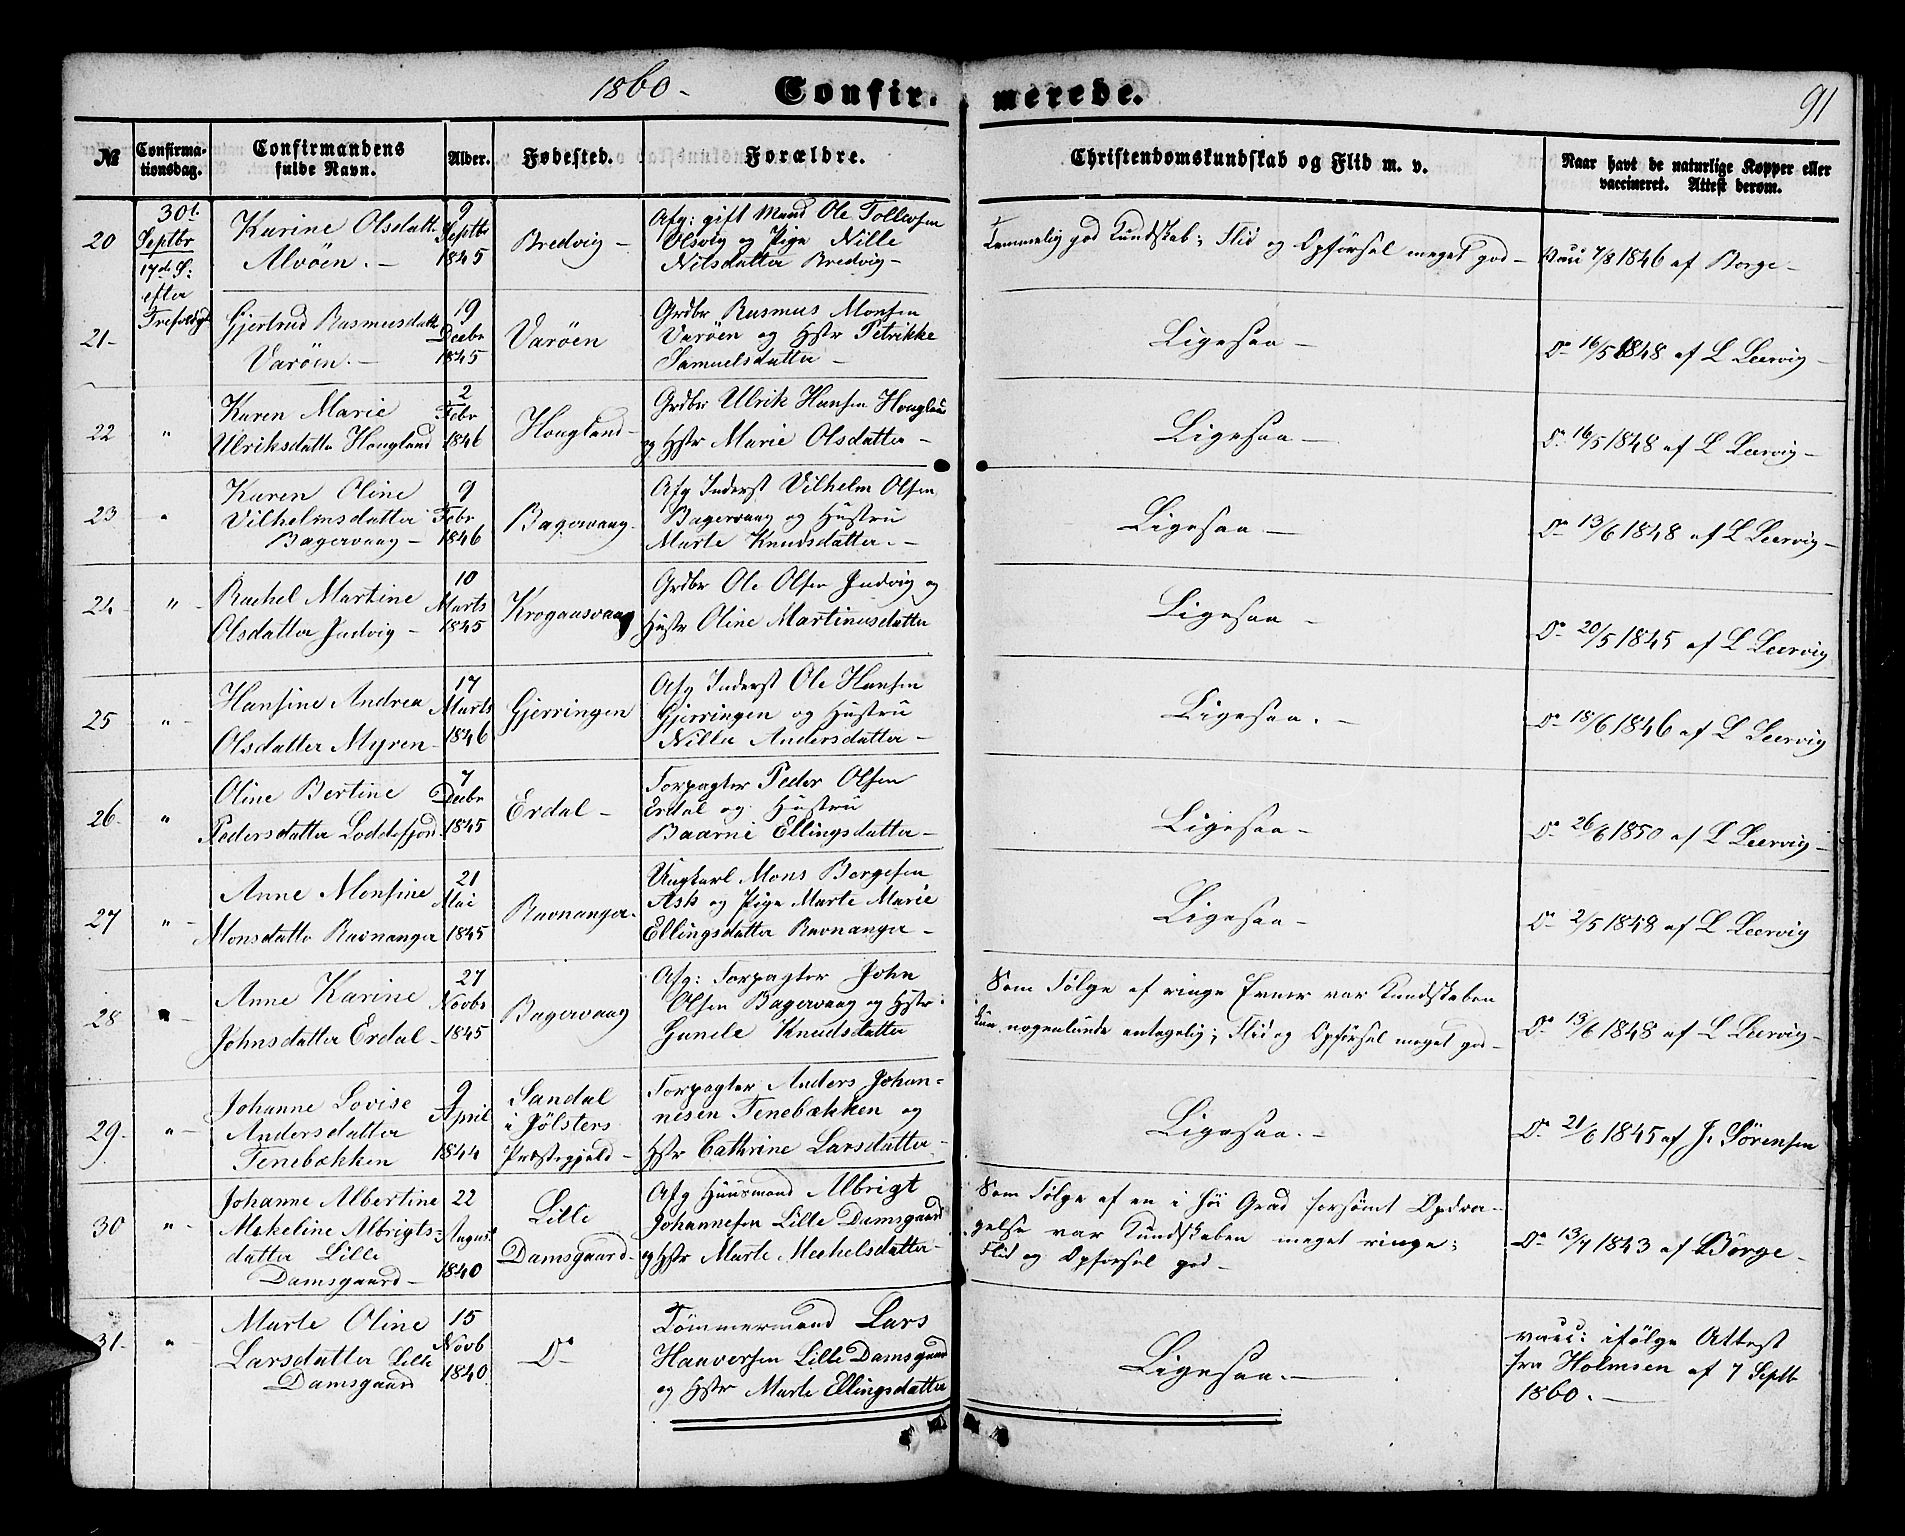 1860-
Confir- merede.
91
№
Confirma-
tionsdag.
Confirmandens
fulde Navn.
Alder.
Fødested.
Forældre.
Christendomskundskab og Flid m. v.
Naar havt de naturlige Kopper eller
vaccineret. Attest derom.
20
30t
Septbr
17de S:
efter
Trefoldigh
Karine Olsdattr
Alvøen. -
9
Septbr
1845
Bredvig -
Afg: gift Mand Ole Tollersen
Olsvig og Pige Nille
Nilsdatter Bredvig -
Temmelig god Kundskab; Flid og Opførsel meget god -
Vacc 7/8 1846 af Borge -
21-
Gjertrud Rasmusdattr
Varøen. -
19
Decbr
1845
Varøen
Grdbr Rasmus Monsen
Varøen og Hstr Petrikke
Samuelsdatter -
Ligesaa -
Do 16/5 1848 af L Leervig -
22
"
Karen Marie
Ulriksdattr Hougland
2
Febr
1846
Hougland -
Grdbr Ulrik Hansen Houglan
og Hstr Marie Olsdatter -
Ligesaa -
Do 16/5 1848 af L Leervig -
23
"
Karen Oline
Vilhelmsdatter
Bagervaag -
9
Febr
1846
Bagervaag -
Afg Inderst Vilhelm Olsen
Bagervaag og Hustru
Marte Knudsdatter. -
Ligesaa -
Do 13/6 1848 af L Leervig -
24 -
" -
Rachel Martine
Olsdatter Indvig -
10
Marts
1845
Krogaasvaag
Grdbr Ole Olsen Indvig og
Hustr Oline Martinusdatter
Ligesaa -
Do 20/5 1845 af L Leervig
25
" -
Hansine Andrea
Olsdatter Myren -
17
Marts
1846
Gjerringen
Afg Inderst Ole Hansen
Gjerringen og Hustru
Nille Andersdatter -
Ligesaa. -
Do 18/6 1846 af L Leervig
26 -
"
Oline Bertine
Pedersdatter Loddefjord
7
Decbr
1845
Erdal -
Forpagter Peder Olsen
Erdal og Hustru
Baarni Ellingsdatter -
Ligesaa -
Do 26/6 1850 af L Leervig -
27
" -
Anne Monsine
Monsdattr Ravnanger
21
Mai
1845
Ravnanger -
Ungkarl Mons Borgesen
Ask og Pige Marte Marie
Ellingsdatter Ravnanger -
Ligesaa -
Do 2/5 1848 af L Leervig
28
" -
Anne Karine
Johnsdatter Erdal -
27
Novbr
1845
Bagervaag
Afg: Forpagter John
Olsen Bagervaag og Hstr
Gunele Knudsdatter
Som Følge af ringe Evner var Kundskaben
kun nogenlunde antagelig; Flid og Opførsel meget god -
Do 13/6 1848 af L Leervig -
29 -
" -
Johanne Lovise
Andersdatter
Tenebækken
9
April
1844
Sandal
i Jølsters
Præstegjeld -
Forpagter Anders Johan-
nesen Tenebækken og
Hstr Cathrine Larsdatter -
Ligesaa. -
Do 21/6 1845 af J. Sørensen
30
" -
Johanne Albertine
Mekeline Albrigts-
datter Lille
Damsgaard -
22
August
1840
Lille
Damsgaard -
Afg Huusmand Albrigt
Johannesen Lille Damsgaard
og Hstr Marte Mechelsdatter -
Som Følge af en i høi Grad forsømt Opdra-
gelse var Kundskaben meget ringe;
Flid og Opførsel god -
Do 13/7 1843 af Børge -
31.
" -
Marte Oline
Larsdatter Lille
Damsgaard
15
Novb
1840
Do
Tømmermand Lars
Haaversen Lille Damsgaard
og Hstr Marte Ellingsdatter
Ligesaa. -
vacc: ifølge Attest
fra Holmsen af 7 Septbr
1860. -